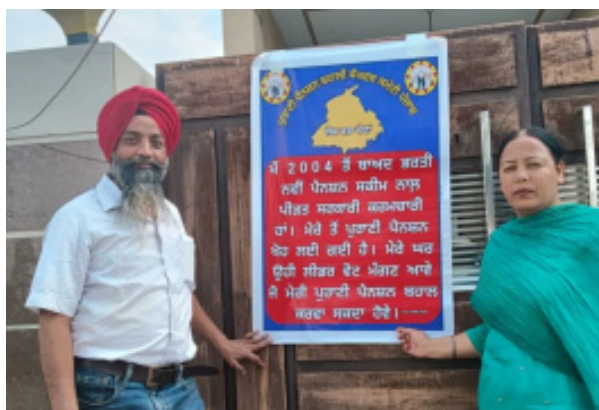 ਪੁਰਾਣੀ ਪੈਨਸ਼ਨ ਬਹਾਲੀ ਸੰਘਰਸ਼ ਕਮੇਟੀ ਪੰਜਾਬ
ਮੈਂ 2004 ਤੋਂ ਬਾਅਦ ਭਰਤੀ
ਨਵੀਂ ਪੈਨਸ਼ਨ ਸਕੀਮ ਨਾਲ
ਪੀੜਤ ਸਰਕਾਰੀ ਕਰਮਚਾਰੀ
ਹਾਂ। ਮੇਰੇ ਤੋਂ ਪੁਰਾਣੀ ਪੈਨਸ਼ਨ
ਖੋਹ ਲਈ ਗਈ ਹੈ। ਮੇਰੇ ਘਰ
ਉਹੀ ਲੀਡਰ ਵੋਟ ਮੰਗਣ ਆਵੇ
ਜੋ ਮੇਰੀ ਪੁਰਾਣੀ ਪੈਨਸ਼ਨ ਬਹਾਲ
ਕਰਵਾ ਸਕਦਾ ਹੋਵੇ।